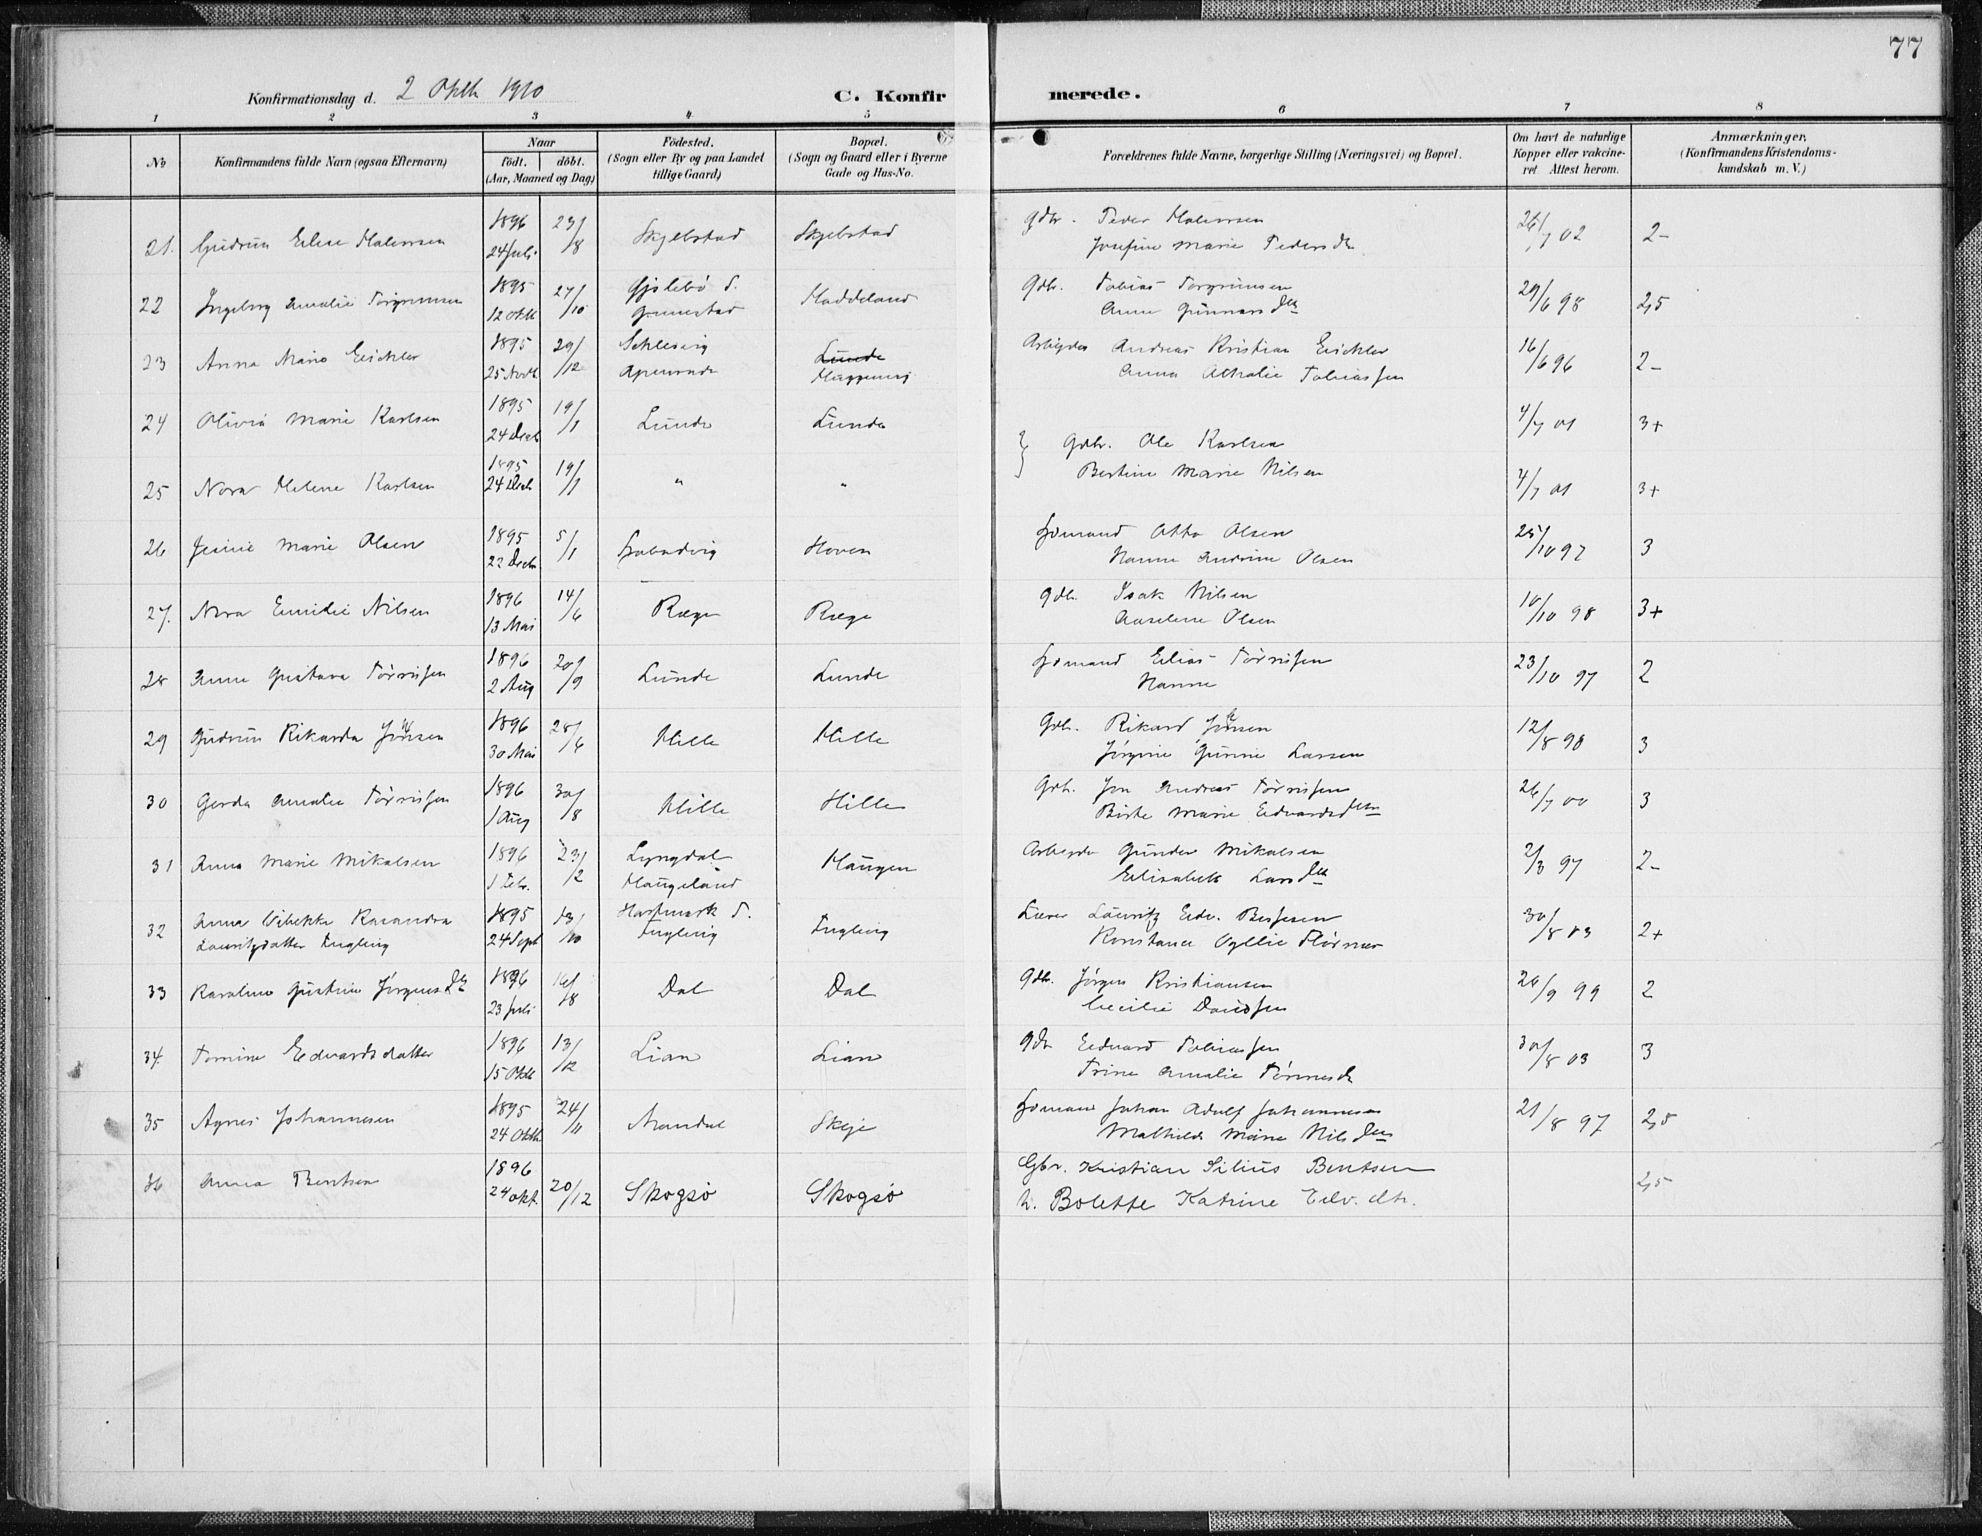 77
Konfirmationsdag d. 2 Oktb 1910 C. Konfirmerede.
1 2 3 4 5 6 7 8
No
Konfirmandens fulde Navn (ogsaa Efternavn)
Naar
født. døbt.
(Aar, Maaned og Dag)
Födested.
(Sogn eller By og paa Landet
tillige Gaard)
Bopæl.
(Sogn og Gaard eller i Byerne
Gade og Hus-No.
Forældrenes fulde Navne, borgerlige Stilling (Næringsvei) og Bopæl.
Om havt de naturlige
Kopper eller vakcine-
ret Attest herom.
Anmærkninger,
(Konfirmandens Kristendoms-
kundskab m. V.)
21. Gudrun Elise 1896 24 Juli 23/8 Skjelstad Skjelstad Gdb. Peder
Josefine Marie Pedersdtr 26/7 02 2-
22 Ingeborg Amalie Torgrimsen 1895 12 Oktb 27/10 Gjslebø S. Haddeland Gdb. Tobias Torgrimsen
Anne Gunnarsdtr 29/6 98 2,5
23 Anna Marie Eichler 1895 25 Novb 29/12 Schlesvig Lunde Arbeider Andreas Kristian Eichler
Apenrade Anna Athalie Tobiassen 16/6 96 2-
24 Olivia Marie Karlsen 1895 24 Decb 19/1 Lunde Lunde 4/7 01 3+
} Gdbr. Ole Karlsen
Bertine Marie Nilsen
25 Nora Helene Karlsen 1895 24 Decb 19/1 " " 4/7 01 3+
26 Jenine Marie Olsen 1895 22 Decb 5/1 Hoven Sømand Otto Olsen
Hanne Andrine Olsen 25/10 97 3
27. Nora Emilie Nilsen 1896 13 Mai 14/6 Ræge Ræge Gdb. Isak Nilsen
Aaselene Olsen 10/10 98 3+
28 Anne Gustava Tørrissen 1896 2 Aug 20/9 Lunde Lunde Sømand Elias Tørrissen
Hanne 23/10 97 2
29 Gudrun Rikarda Jönsen 1896 30 Mai 28/6 Hille Hille Gdb. Rikard Jönsen
Jørgine Gurine Larsen 12/8 98 3
30 Gerda Amalie Tørrissen 1896 1 Aug 30/8 Hille Hille Gdb. Jon Andreas Tørrissen
Birte Marie Edvardsdtr 26/7 00 3
31 Anna Marie Mikalsen 1896 1 Febr. 23/2 Lyngdal Haugen Arbeider Gunder Mikalsen
Haugeland Elisabeth Larsdtr 2/8 97 2-
32 Anna Vibekke Rasandra 1895 24 Sept 13/10 Hartmark S. Tugleiig Lærer Lauritz Edv. Bessesen
Lauritzdatter Konstance 30/8 03 2+
33 Karoline Gustine Jørgensdtr 1896 23 Juli 16/8 Dal Dal Gdb. Jørgen Kristiansen
Cecilie Davidsen 26/9 99 2
34. Tomine Edvardsdatter 1896 15 Oktb 13/12 Lian Lian Gdb Edvard Tobiassen
Trine Amalie Tønnesdtr 30/8 03 3
35 Agnes Johannesen 1895 24 Oktb. 24/11 Mandal Skeje Sømand Johan Adolf Johannesen
Mathilde Marie Nilsdtr 21/8 97 2,5
36 Anna Bentsen 1896 24 okt. 20/12 Skogsø Skogsø Gbr. Kristian Silius Bentsen
h. Bolette Katrine Edv. dtr. 2,5